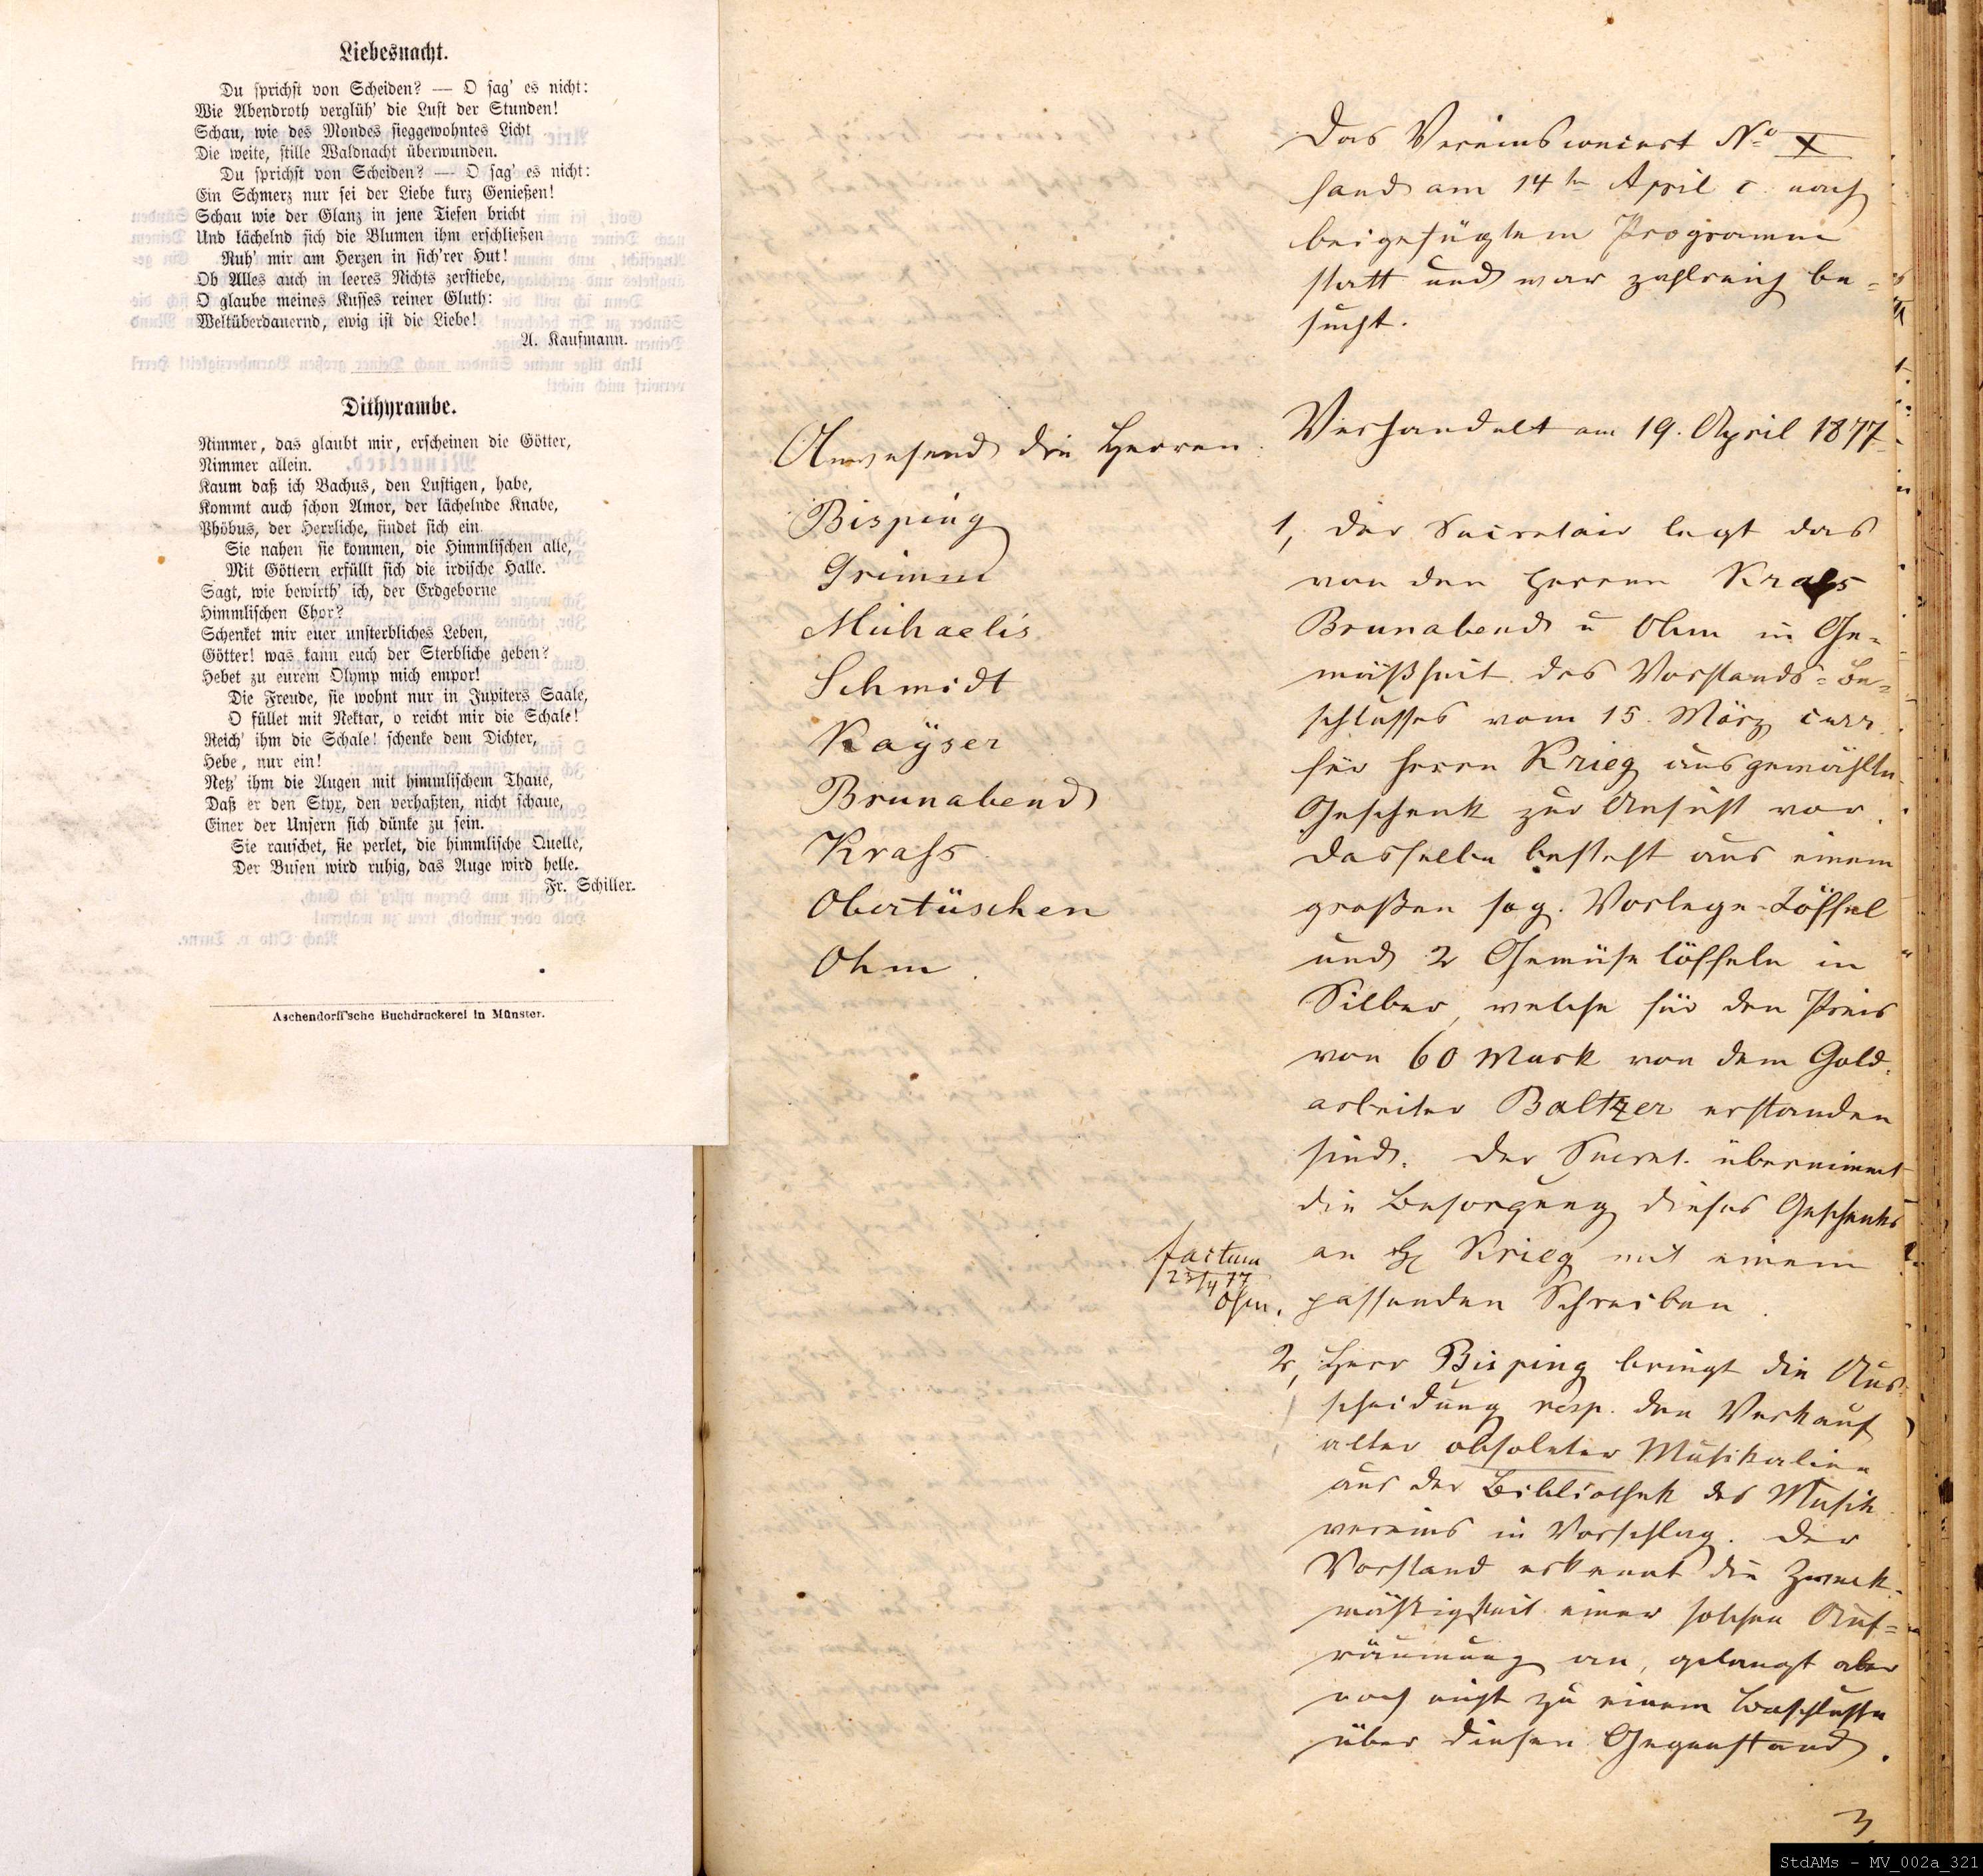 Liebesnacht.
Du sprichst von Scheiden? — O sag' es nicht:
Wie Abendroth verglüh' die Lust der Stunden!
Schau, wie des Mondes sieggewohntes Licht
Die weite, stille Waldnacht überwunden.
Du sprichst von Scheiden? — O sag' es nicht:
Ein Schmerz nur sei der Liebe kurz Genießen!
Schau wie der Glanz in jene Tiefen bricht
Und lächelnd sich die Blumen ihm erschließen
Ruh' mir am Herzen in sich'rer Hut!
Ob Alles auch in leeres Nichts zerstiebe,
O glaube meines Kusses reiner Gluth:
Weltüberdauernd, ewig ist die Liebe!
A. Kaufmann.
Dithyrambe.
Nimmer, das glaubt mir, erscheinen die Götter,
Nimmer allein.
Kaum daß ich Bachus, den Lustigen, habe,
Kommt auch schon Amor, der lächelnde Knabe,
Phöbus, der Herrliche, findet sich ein.
Sie nahen sie kommen, die Himmlischen alle,
Mit Göttern erfüllt sich die irdische Halle.
Sagt, wie bewirth' ich, der Erdgeborne
Himmlischen Chor?
Schenket mir euer unsterbliches Leben,
Götter! was kann euch der Sterbliche geben?
Hebet zu eurem Olymp mich empor!
Die Freude, sie wohnt nur in Jupiters Saale,
O füllet mit Nektar, o reicht mir die Schale!
Reich' ihm die Schale! schenke dem Dichter,
Hebe, nur ein!
Netz' ihm die Augen mit himmlischem Thaue,
Daß er den Styx, den verhaßten, nicht schaue,
Einer der Unsern sich dünke zu sein.
Sie rauschet, sie perlet, die himmlische Quelle,
Der Busen wird ruhig, das Auge wird helle.
Fr. Schiller.
Aschendorff'sche Buchdruckerei in Münster.
Das Vereinsconcert No X
fand am 14ten April c. nach
beigefügtem Programm
statt und war zahlreich be=
sucht.
Anwesend die Herren
Bisping
Grimm
Michaelis
Schmidt
Kaÿser
Brunabend
Krass
Obertüschen
Ohm.
Verhandelt am 19. April 1877
1, Der Secretair legt das
von den Herren Krass
Brunabend u Ohm in Ge=
mäßheit des Vorstands=Be=
schlusses vom 15. März curr.
für Herrn Krieg ausgewählte
Geschenk zur Ansicht vor.
Dasselbe besteht aus einem
großen sog. Vorlege-Löffel
und 2 Gemüselöffeln in
Silber, welche für den Preis
von 60 Mark von dem Gold=
arbeiter Baltzer erstanden
sind. Der Secret. übernimmt
die Besorgung dieses Geschenks
an H Krieg mit einem
passenden Schreiben.
factum
23/4 77
Ohm.
2, Herr Bisping bringt die Aus=
scheidung resp. den Verkauf
alter obsoleter Musikalien
aus der Bibliothek des Musik
vereins in Vorschlag. Der
Vorstand erkennt die Zweck=
mäßigkeit einer solchen Auf=
räumung an, gelangt aber
noch nicht zu einem Beschlusse
über diesen Gegenstand.
3,
StdAMs - MV_002a_321